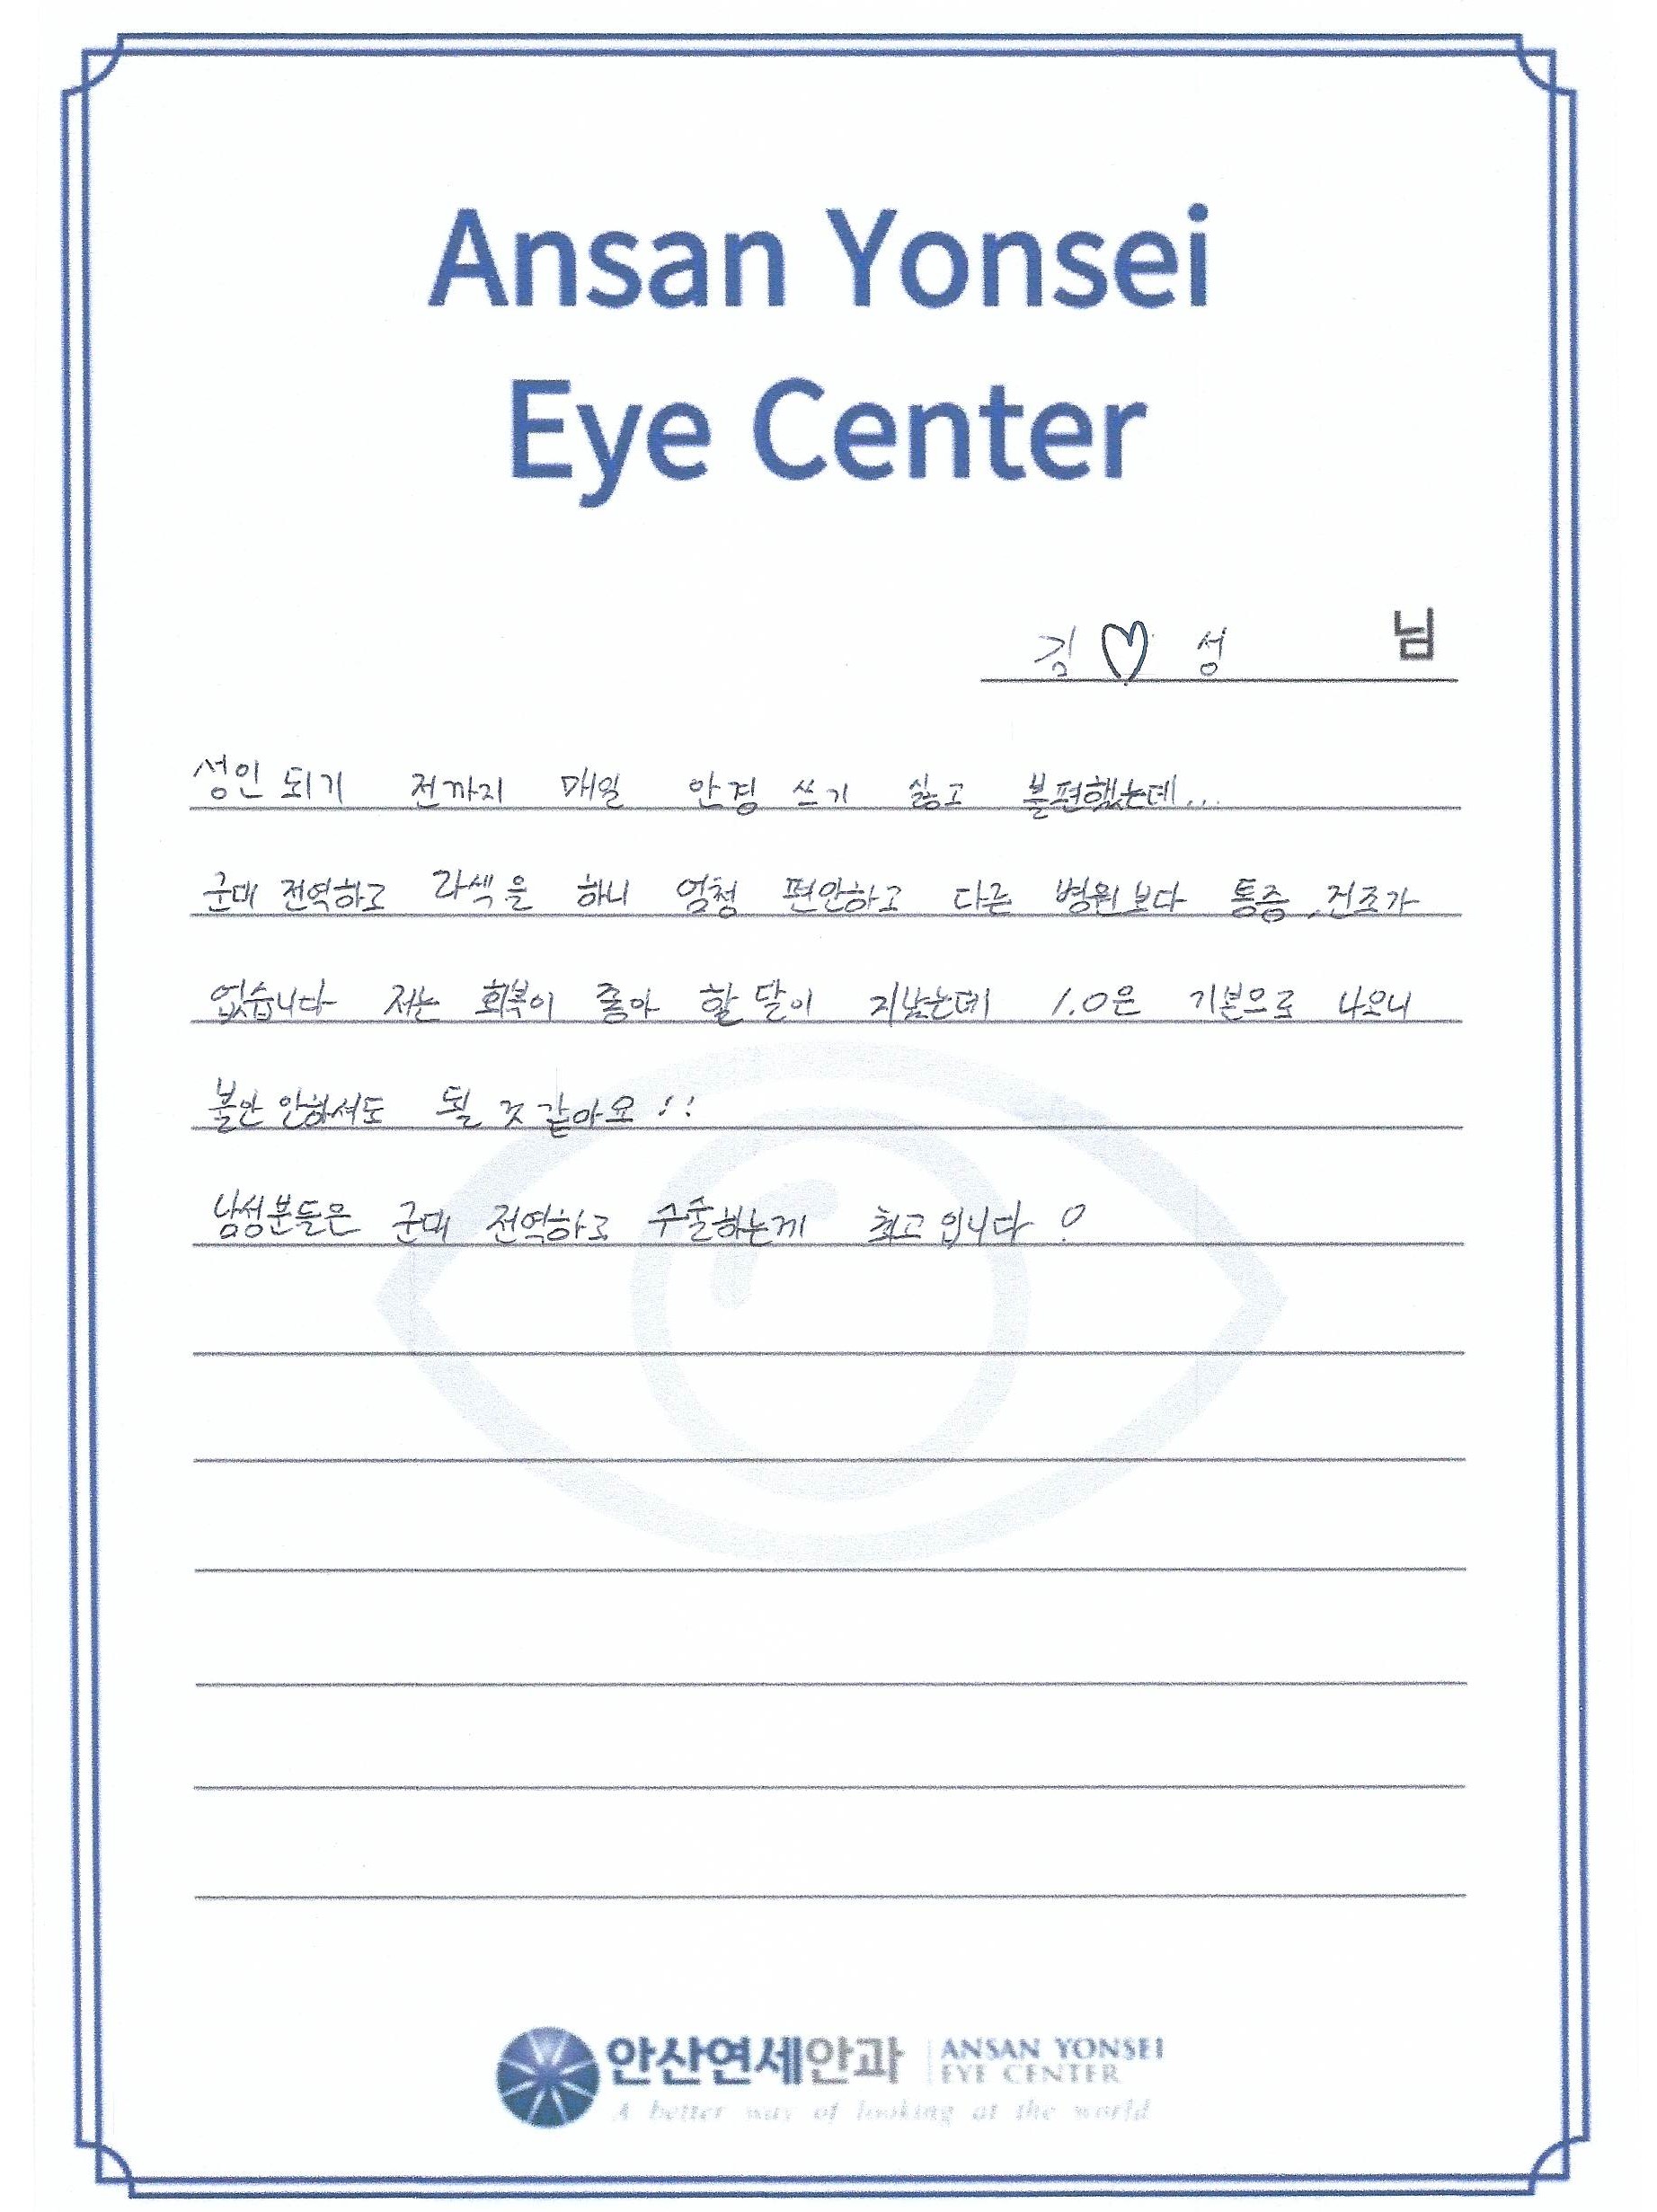 Ansan Yonsei
Eye Center
김♡성 님
성인 되기 전까지 매일 안경 쓰기 싫고 불편했는데...
군대 전역하고 라섹을 하니 엄청 편안하고 다른 병원보다 통증, 건조가
없습니다 저는 회복이 좋아 한 달이 지났는데 1.0은 기본으로 나오니
불안 안하셔도 될 것 같아요!!
남성분들은 군대 전역하고 수술하는게 최고입니다!
안산연세안과 ANSAN YONSEI
EYE CENTER
A better way of looking at the world